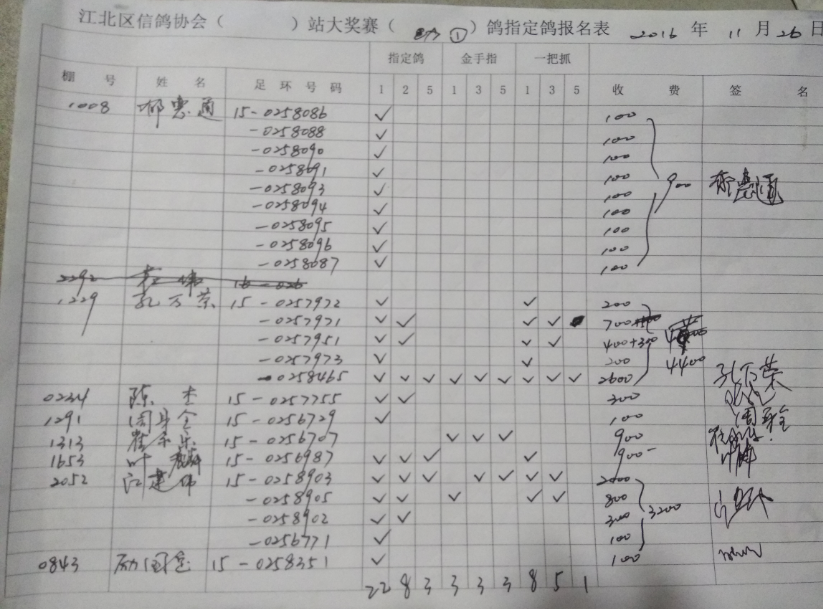 江北区信鸽协会（ ）站大奖赛（ ① ）鸽指定鸽报名表 2016 年 11 月 26 日
指定鸽 金手指 一把抓
棚 号 姓 名 足 环 号 码 1 2 5 1 3 5 1 3 5 收 费 签 名
1008 惠通 15-0258086 ✓ 100
-0258088 ✓ 100
-0258090 ✓ 100
-0258091 ✓ 100
-0258093 ✓ 100 900 惠通
-0258094 ✓ 100
-0258095 ✓ 100
-0258096 ✓ 100
-0258087 ✓ 100
2292
1229 孔万荣 15-0257972 ✓ ✓ 200
-0257971 ✓ ✓ ✓ ✓ 700
-0257951 ✓ ✓ ✓ ✓ 400+300
-0257973 ✓ ✓ 200 4400
-0258465 ✓ ✓ ✓ ✓ ✓ ✓ ✓ ✓ ✓ 2600 孔万荣
0234 陈杰 15-0257755 ✓ ✓ 300
1291 15-0256729 ✓ 100
1313 15-0256707 ✓ ✓ ✓ 900
1653 叶 15-0256987 ✓ ✓ ✓ ✓ 900
2052 江建伟 15-0258903 ✓ ✓ ✓ ✓ ✓ ✓ ✓ 2000
-0258905 ✓ ✓ ✓ ✓ ✓ 800
-0258902 ✓ ✓ 300 3200
-0256771 ✓ 100
0843 励国 15-0258351 ✓ 100
22 8 3 3 3 3 8 5 1